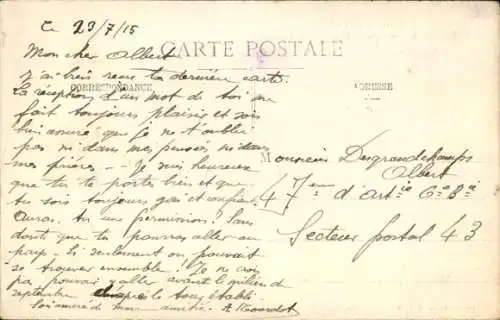 Ce 23/7/15
CARTE POSTALE
Mon cher Albert
J'ai bien reçu ta dernière carte.
CORRESPONDANCE
ADRESSE
La réception d'un mot de toi me
fait toujours plaisir et sois
bien assuré que je ne t'oublie
pas ni dans mes pensées ni dans
mes prières. — Je suis heureux
que tu te portes bien et que
tu sois toujours gai et
Auras-tu une permission? Sans
doute que tu pourras aller au
pays. Si seulement on pouvait
se trouver ensemble! Je ne crois
pas pouvoir y aller avant le milieu de
septembre le tour établi.
Sois assuré de mon amitié. A.
Monsieur Desgrandchamps
Albert
47ème d'artie 6e Bie
Secteur postal 43